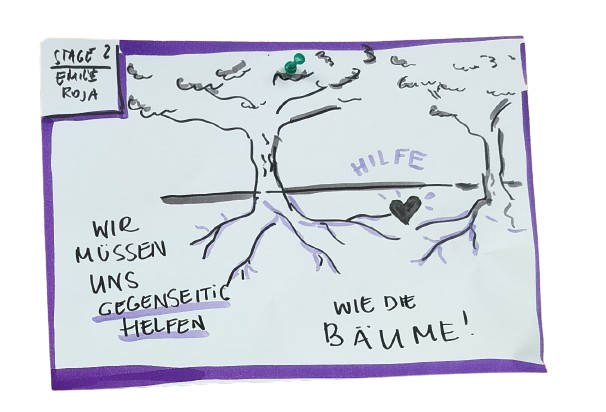 STAGE 2
EMILIE
ROJA
HILFE
WIR
MÜSSEN
UNS
GEGENSEITIG
HELFEN
WIE DIE
BÄUME!